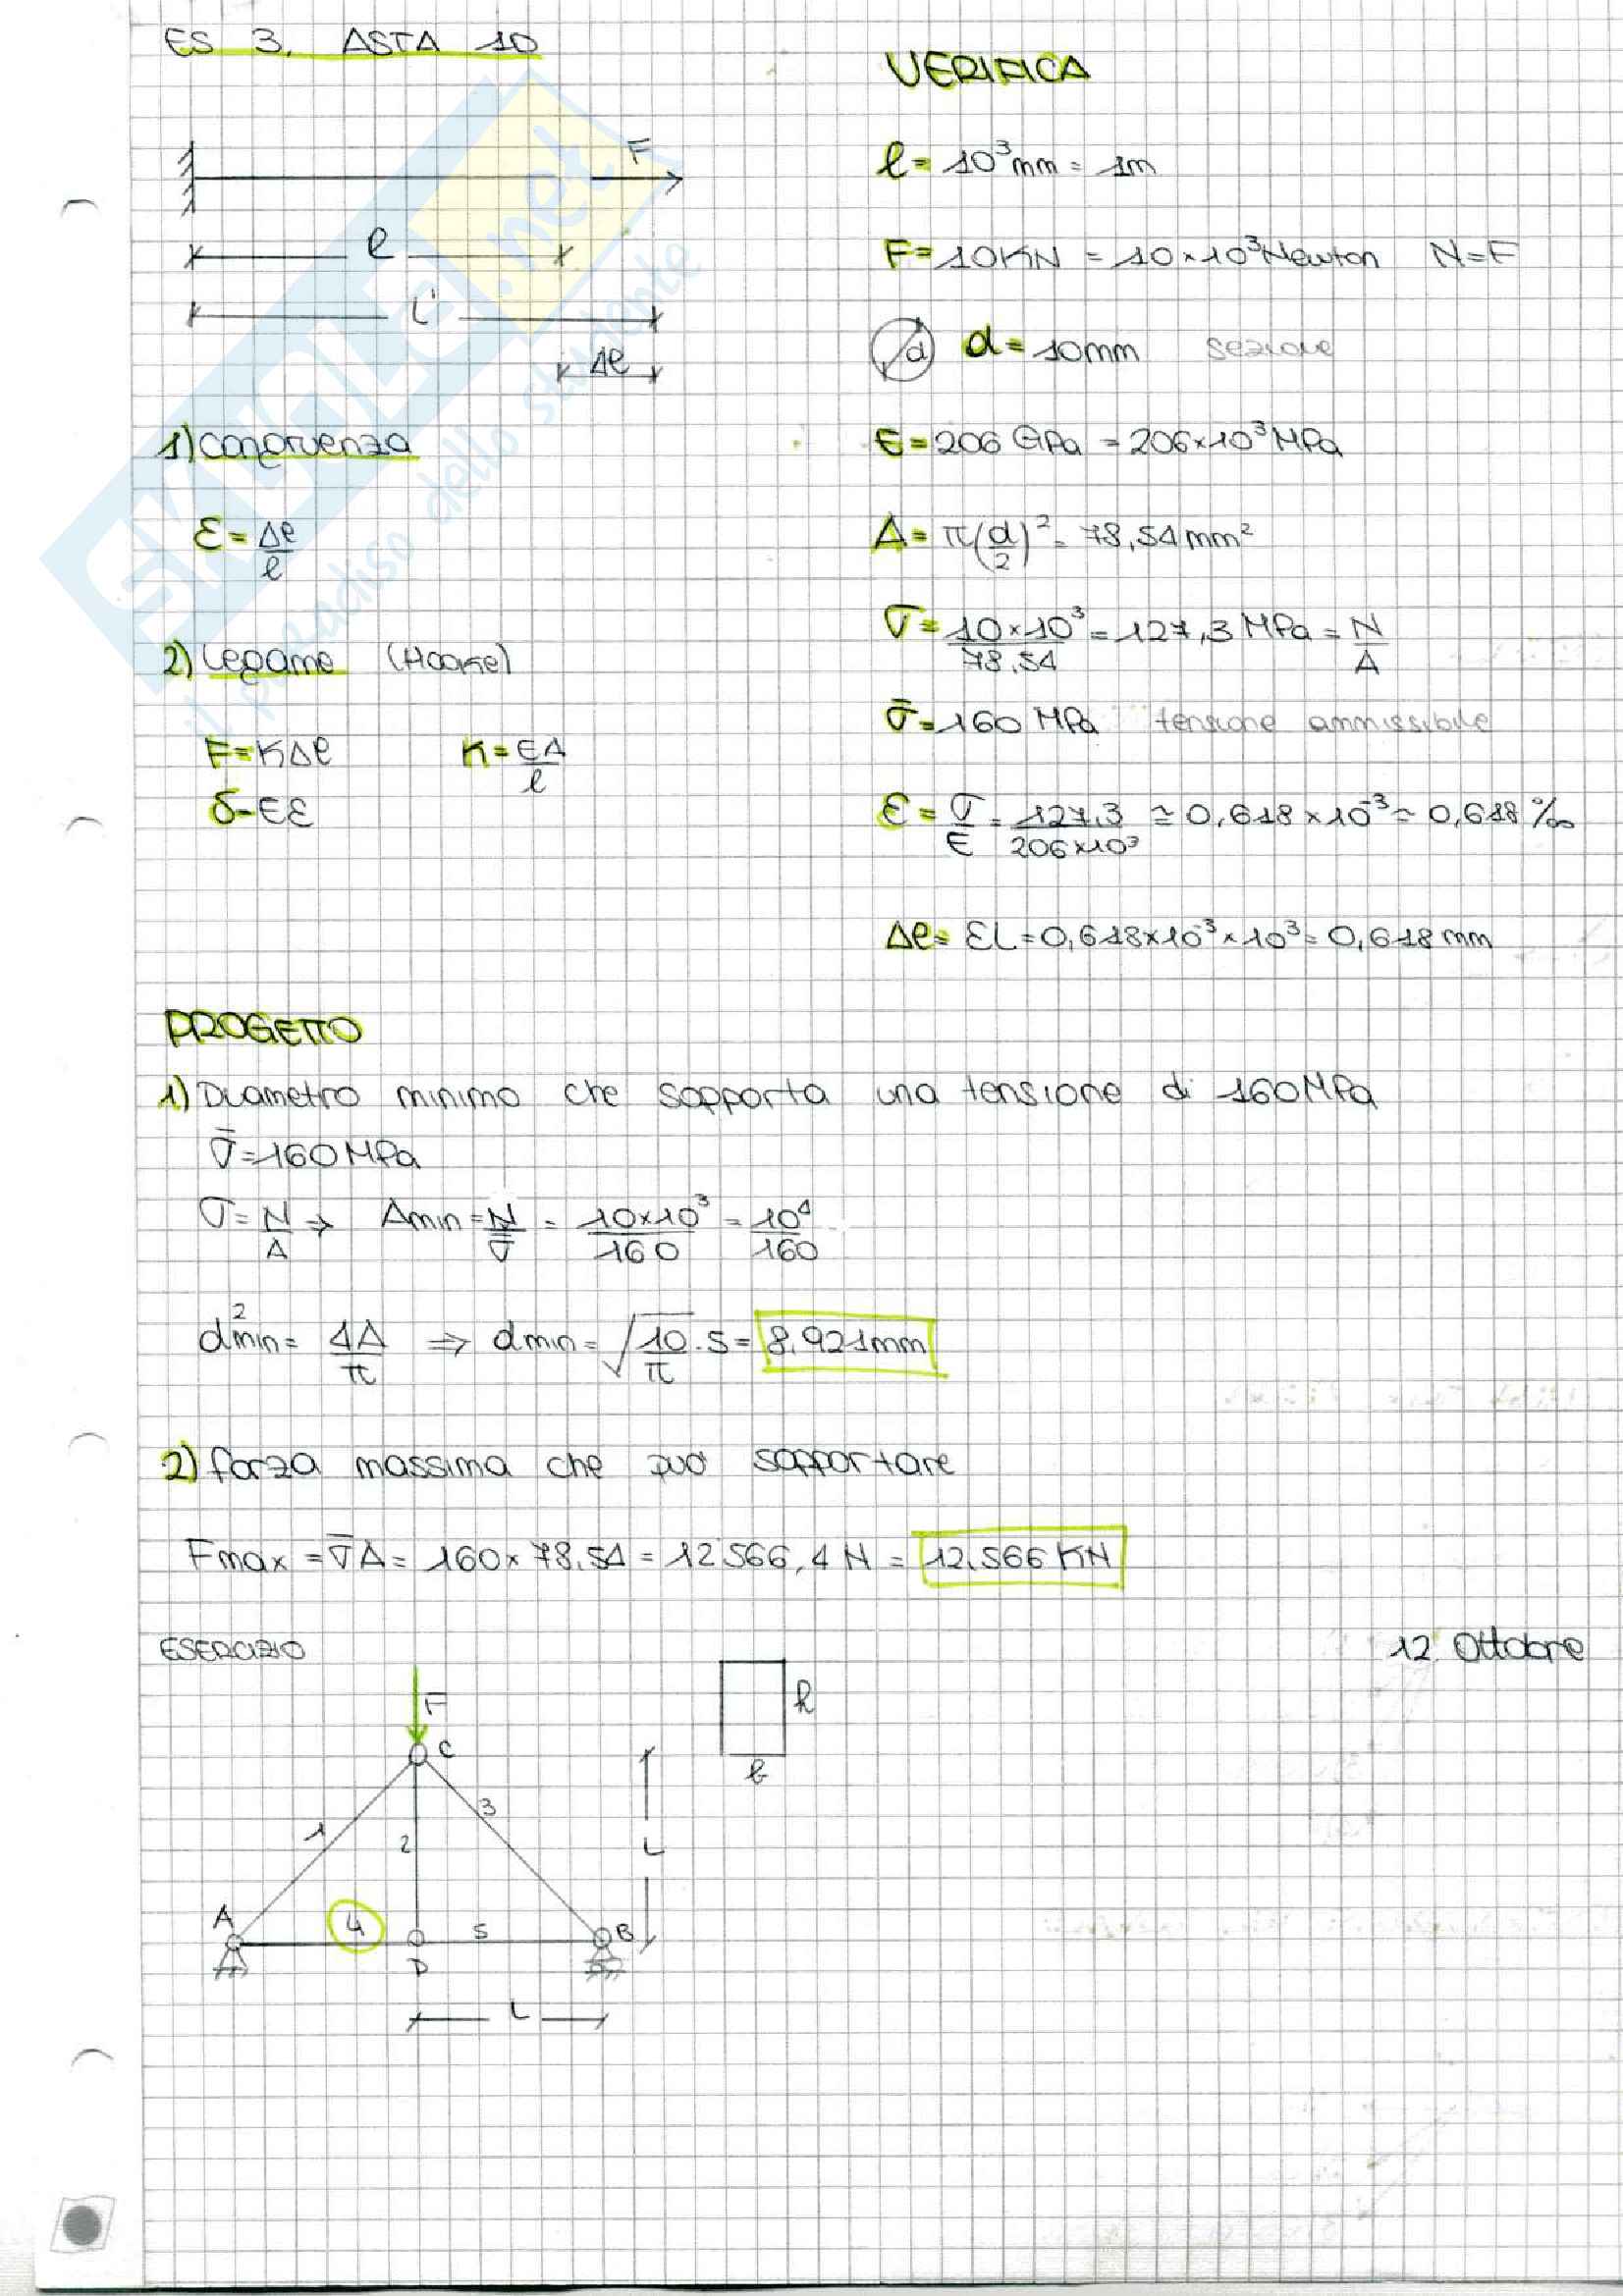 ES 3. ASTA 1D
F
l
L'
Δl
1) congruenza
ε = Δl / l
2) Legame (Hooke)
F = KΔl K = EA / l
σ = Eε
VERIFICA
l = 10³mm = 1m
F = 10KN = 10×10³Newton N=F
d d = 10mm sezione
E = 206 GPa = 206×10³MPa
A = π(d/2)² = 78,54mm²
σ = 10×10³ / 78.54 = 127,3 MPa = N / A
σ̄ = 160 MPa tensione ammissibile
ε = σ / E = 127,3 / 206×10³ ≅ 0,618×10⁻³ ≃ 0,618‰
Δl = εL = 0,618×10⁻³×10³ = 0,618mm
PROGETTO
1) Diametro minimo che sopporta una tensione di 160MPa
σ̄ = 160MPa
σ = N / A ⇒ Amin = N / σ̄ = 10×10³ / 160 = 10⁴ / 160
d²min = 4A / π ⇒ dmin = √10/π . 5 = 8,921mm
2) forza massima che può sopportare
Fmax = σ̄A = 160×78.54 = 12566,4 N = 12.566 KN
ESERCIZIO
12 Ottobre
F
h
b
C
1
3
2
L
A
4
5
B
D
L
SKUOLA.net
il paradiso dello studente